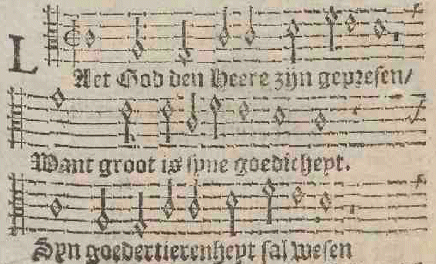 LAet God den Heere zijn gepresen/
Want groot is syne goedicheyt.
Syn goedertierenheyt sal wesen